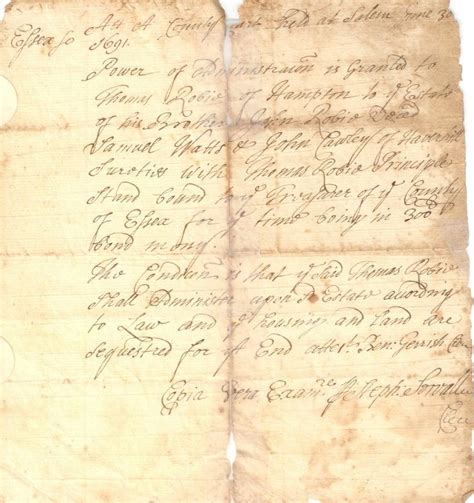 Essex ss At A County Court held at Salem June 30
1691.
Power of Administracon is Granted to
Thomas Robie of Hampton to ye Estate
of his Brother John Robie Dead
Samuel Watts & John Cawley of Haverill
Sureties With Thomas Robie Principle
Stand bound to ye Treasurer of ye County
of Essex for ye time being in 300
bond mony.
The Condicon is that ye Said Thomas Robie
Shall Administer upon sd Estate acording
to Law and ye housing and land are
sequestred for yt End attest. Ben: Gerrish Cler
Copia Vera Examd. Joseph
Cler